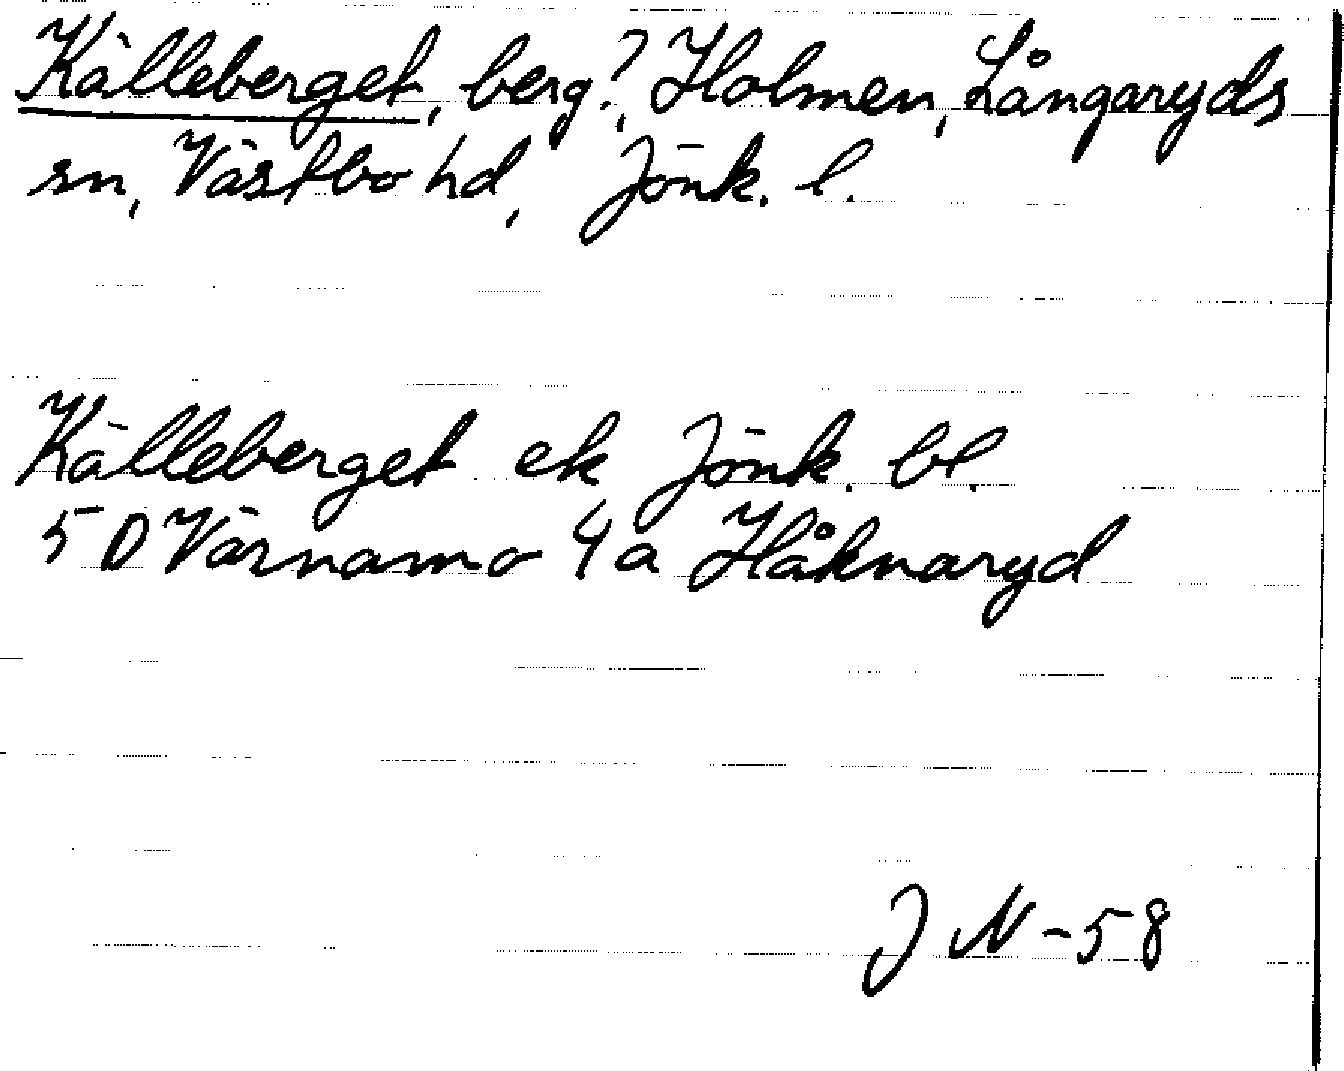 Källeberget, berg?, Holmen, Långaryds
sn, Västbo hd, Jönk. l.
Källeberget ek Jönk. bl.
5 D Värnamo 4a Håknaryd
J N -58